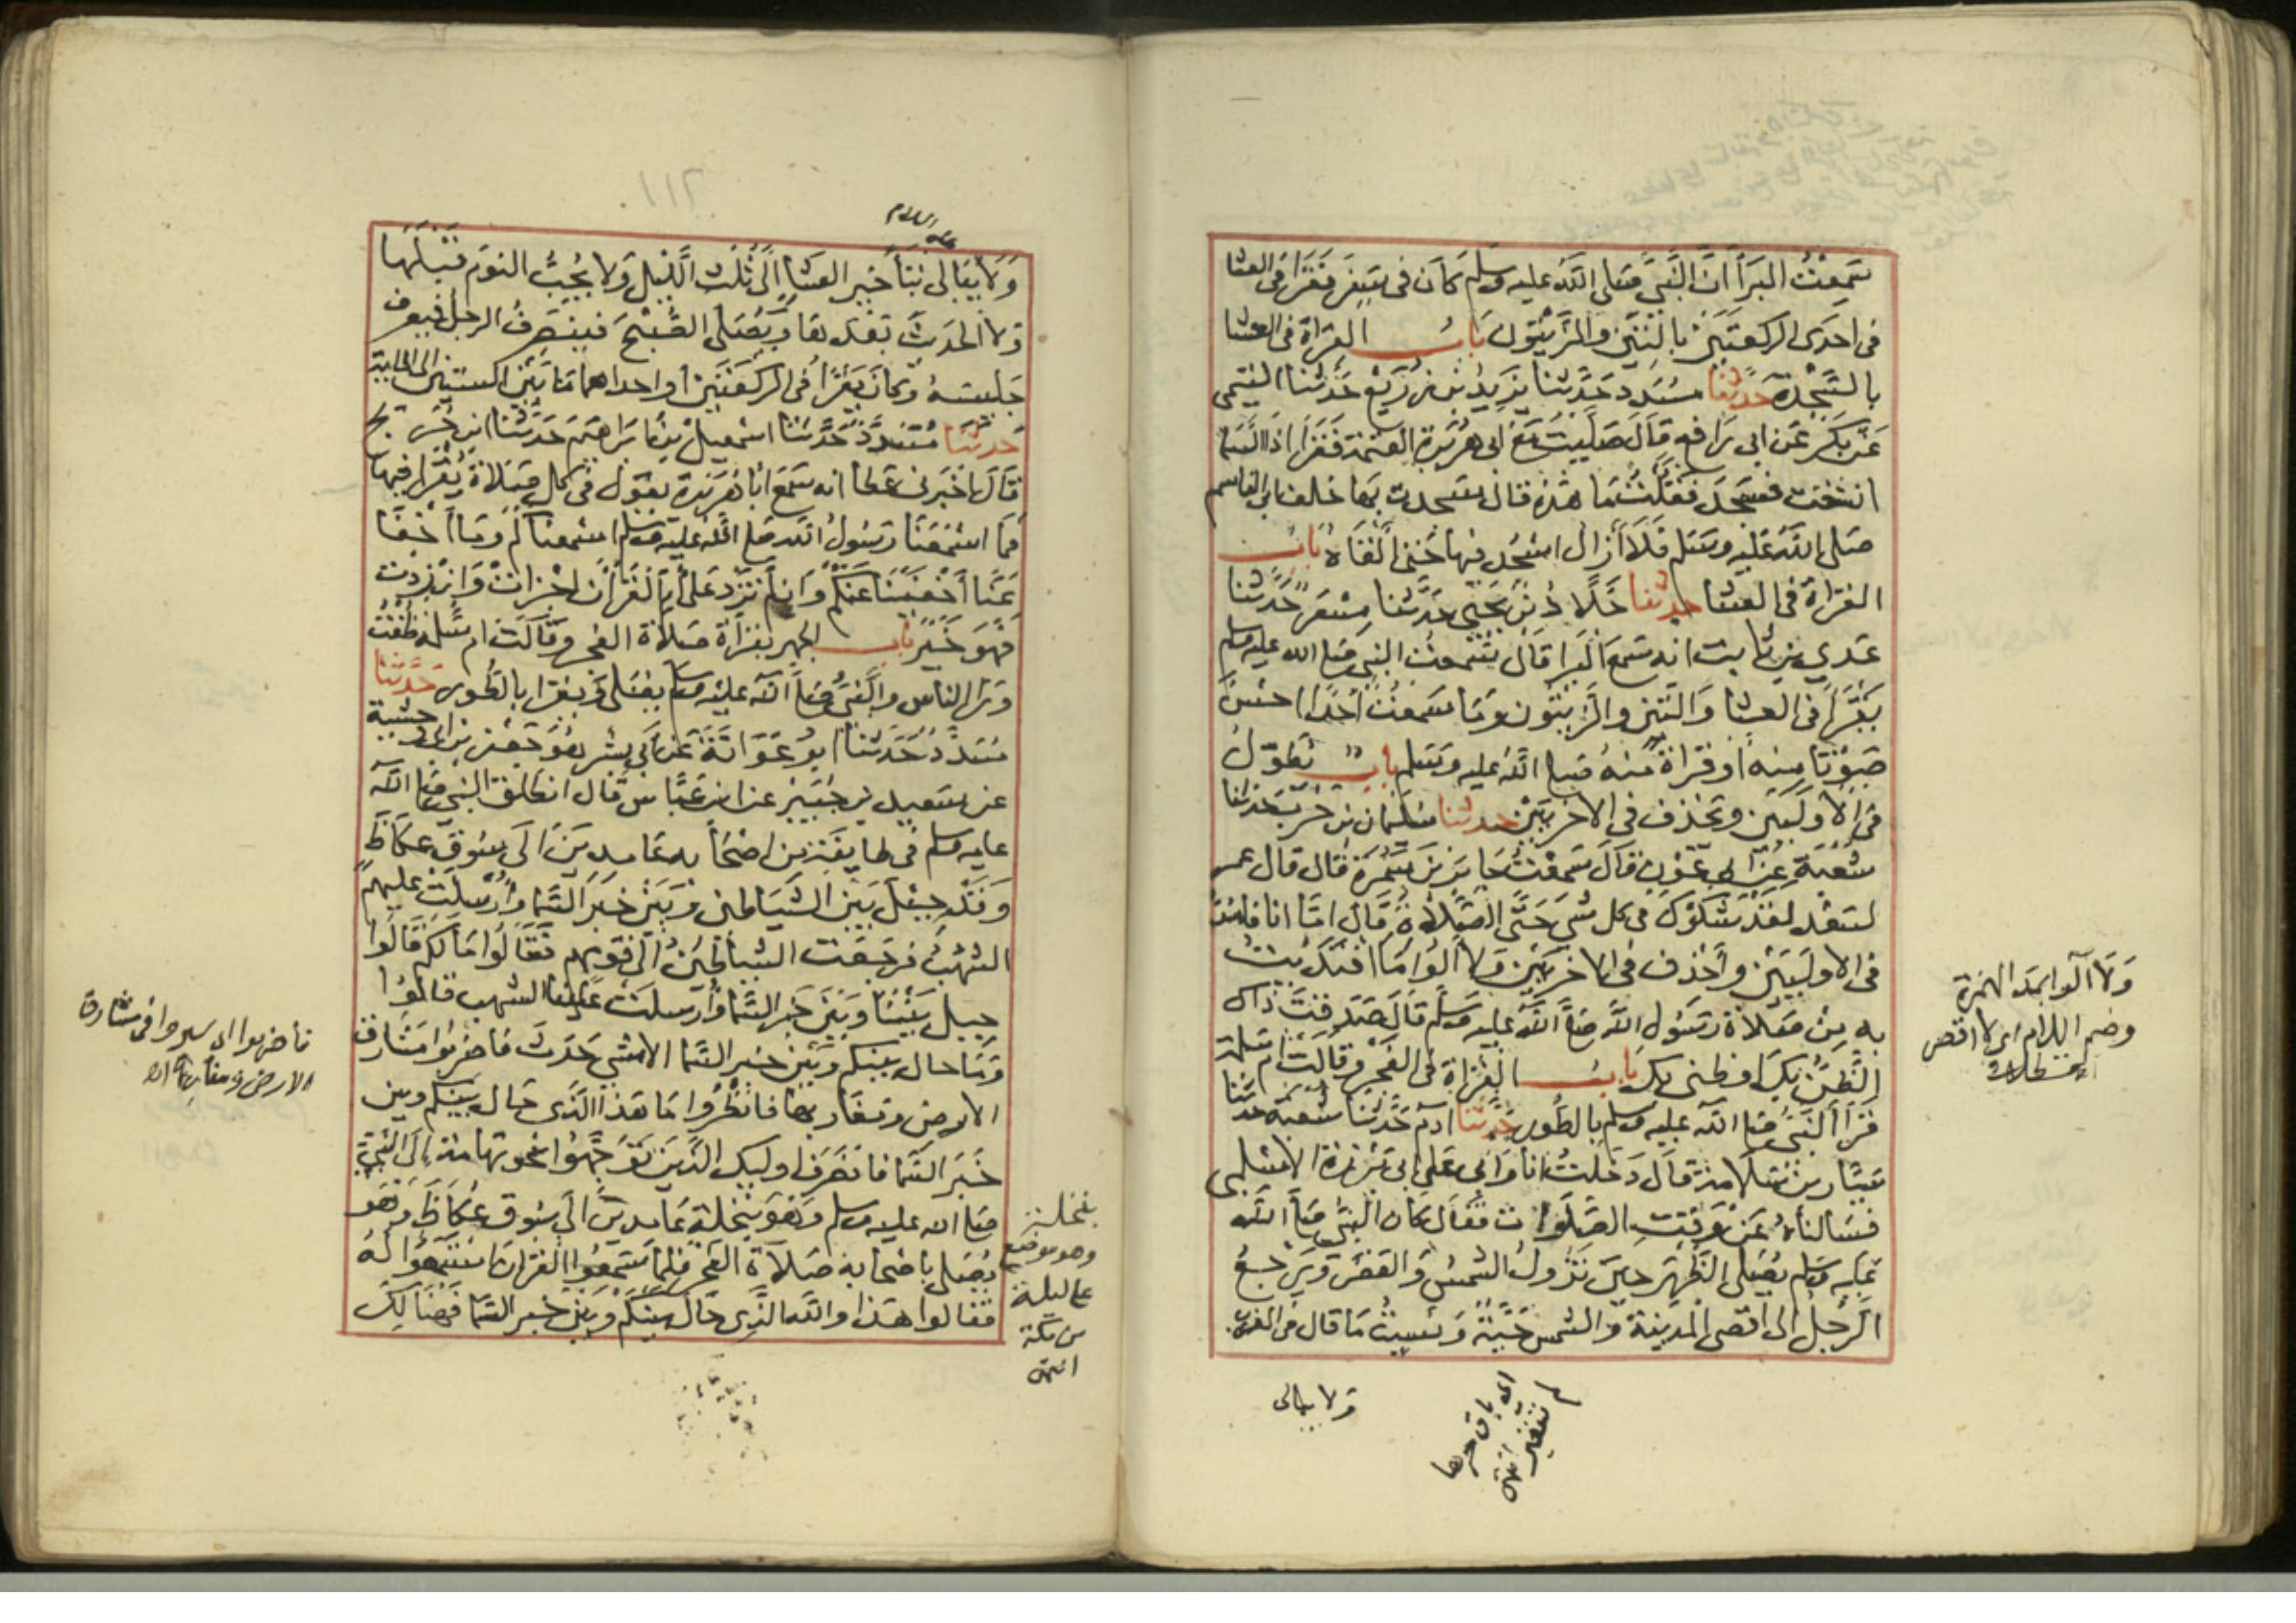 سَمِعْتُ البَرَأَ اَنَّ النَّبِىَّ صَلى اللّٰه عليه وسلم كَانَ فى سَفَرٍ فَقَرَأَ فى العشا
فى احدَى الركعتَيْن بالتين والزَّيتون بَابُ القِرَاةِ فى العشا
بالسَّجْدَةِ حَدثَنا مسَدد حَدَّثنا يزيدُ بن زُرَيْعٍ حَدثَنا التيمى
عَن بَكرٍ عَن ابى رَافع قالَ صَلَّيتُ مَعَ ابى هُرَيْرَةَ العتمَةَ فَقَرَأَ اذا السَّمَا
انشقت فسَجَدَ فَقُلْتُ مَا هَذِهِ قالَ سَجدت بهَا خلف ابى القاسم
صَلى اللّٰه عَليهِ وسَلم فَلا أزال اسْجُد فيها حَتى ألقَاهُ بَاب
القراةِ فى العشا حدثنا خَلَّادُ بْنُ يَحيى حدَّثَنا مِسْعَر حَدَّثَنا
عَدى بن ثابت انه سَمعَ البَرا قال سَمعتُ النبى صَلى الله عليه وسلم
يَقْرَأُ فى العشا وَالتين والزيتون وَمَا سَمعتُ أحدًا احسَن
صَوْتًا مِنهُ أو قراةً منه صَلى اللّٰه عليه وسَلم باب يُطَوّلُ
فى الاُولَيَيْن ويَحذف فى الاخريَيْن حدثنا سُلَيمان بن حَرب حَدثنا
شُعْبَة عن ابى عَوْن قالَ سَمعْتُ جَابرَ بن سَمُرَةَ قال قال عمر
لسَعْد لقَدْ شَكَوْكَ فى كل شىٍ حَتَّى الصَّلَاة قَالَ امَّا انا فامدُّ
فى الاولَيَيْن وأحذف فى الاخريَيْنِ وَلا آلُوا مَا اقتدَيتُ
بِهِ مِنْ صَلاةِ رَسُول اللّٰه صَلى اللّٰه عليه وسَلم قَالَ صَدَقتَ ذاكَ
الظَّنُّ بِكَ او ظنى بك بَابُ القِرَاةِ فى الفَجر وقالَت ام سَلمة
قَرَأ النَّبِىُّ صَلى اللّٰه عليه وسلم بالطُّور حَدَّثنا آدَم حَدَّثَنا شُعبَة حدثنا
سَيَّار بن سَلَامَة قالَ دَخلتُ انا وَابى عَلى ابى بَرْزةَ الاسلمى
فسَالناهُ عَن وَقتِ الصَّلَوات فَقَال كان النبى صَلى اللّٰه
عَليه وسَلم يُصَلى الظّهرَ حينَ تَزُولُ الشمسُ وَالعَصْرَ وَيَرجعُ
الرَّجلُ الى اقصَى المدينَة والشمسُ حَيَّةٌ وَنسيتُ مَا قال فى المغرب
وَلَا آلوا بمَد الهمزة
وضم اللام اى لا اقصر
قسطلانى
اى باق حرها
لم يتغير انتهى
وَلا يبالى
عليه السلام
وَلا يُبَالى بتأخير العشا الَى ثُلث الليل وَلا يُحِبُّ النوم قَبْلَهَا
وَلا الحَديثَ بَعْدهَا وَيُصَلى الصُّبْحَ فَينصَرفُ الرجلُ فيعرف
جَليسَهُ وَكانَ يَقْرَأُ فى الركعَتَيْن أو احداهما مَا بَيْنَ الستين الى الماية
حَدثنَا مُسَدَّدٌ حَدَّثَنَا اسْمعيلُ بْنُ ابرَاهيمَ حَدَّثَنا ابن جُرَيج
قالَ اخبَرنى عَطا انه سَمعَ ابَا هُرَيْرَةَ يَقول فى كل صَلاةٍ يُقْرَأ فيها
فما اسْمَعَنَا رَسُولُ اللّٰه صَلى اللّٰه عليه وسلم اسمعناكُم وَمَا اخفَا
عَنَّا أَخْفَيْنَا عَنكُم وَان لَم تَزِد عَلى أم القرآن اجْزأتْ وَان زِدتَ
فَهُوَ خَيْرٌ بَاب الجهر بقرَاةِ صَلاة الفجر وَقالَت ام سَلمة طفتُ
وَرَا الناس والنَّبىُّ صَلى اللّٰه عليه وسلم يصَلى وَيَقرَأ بالطُّور حَدَّثَنَا
مُسَدَّدُ حَدَّثَنا ابو عَوَانَةَ عَن ابى بشر هُوَ جَعْفر بن ابى وحشية
عن سَعيد بن جُبَيْر عن ابن عَبَّاس قَال انطلق النبى صَلى اللّٰه
عليه وسلم فى طايفَةٍ من اصْحَابه عَامدِينَ الَى سُوقِ عكَاظٍ
وَقَدْ حِيْلَ بَيْنَ الشيَاطين وَبَيْنَ خبَرِ السَّمَا وَاُرْسلَتْ عليهم
الشُّهُبُ فرَجَعَت الشياطينُ الَى قَومهم فقَالُوا مَا لَكم قَالُوا
حيل بَيْنَنَا وَبَيْنَ خَبر السَّمَا وَأُرسلَتْ عَلَينَا الشهب قالُوا
وَمَا حال بينكم وَبَيْنَ خبر السَّمَا الا شىٌ حَدَثَ فَاضربُوا مَشَارق
الارض وَمَغَاربهَا فانظُروا مَا هَذا الَّذى حَال بَيْنَكُم وبين
خَبَر السَّمَا فانصَرَفَ أوليك الَّذينَ تَوَجَّهُوا نحو تهامَة إلى النَّبِىِّ
صَلى الله عليه وسلم وَهُوَ بنَخلَة عَامدِينَ الَى سُوق عُكَاظَ وَهُو
يُصَلى باصحَابه صَلَاةَ الفجر فلما سَمعُوا القرآن اسْتَمعُوا لَهُ
فقَالوا هَذا وَاللّٰه الَّذى حَالَ بَيْنَكم وَبَيْنَ خبر السَّمَا فهُنالكَ
فاضربوا اى سيروا فى مشارق
الارض ومغاربها
بنخلة
وهو موضع
على ليلة
من مكة
انتهى